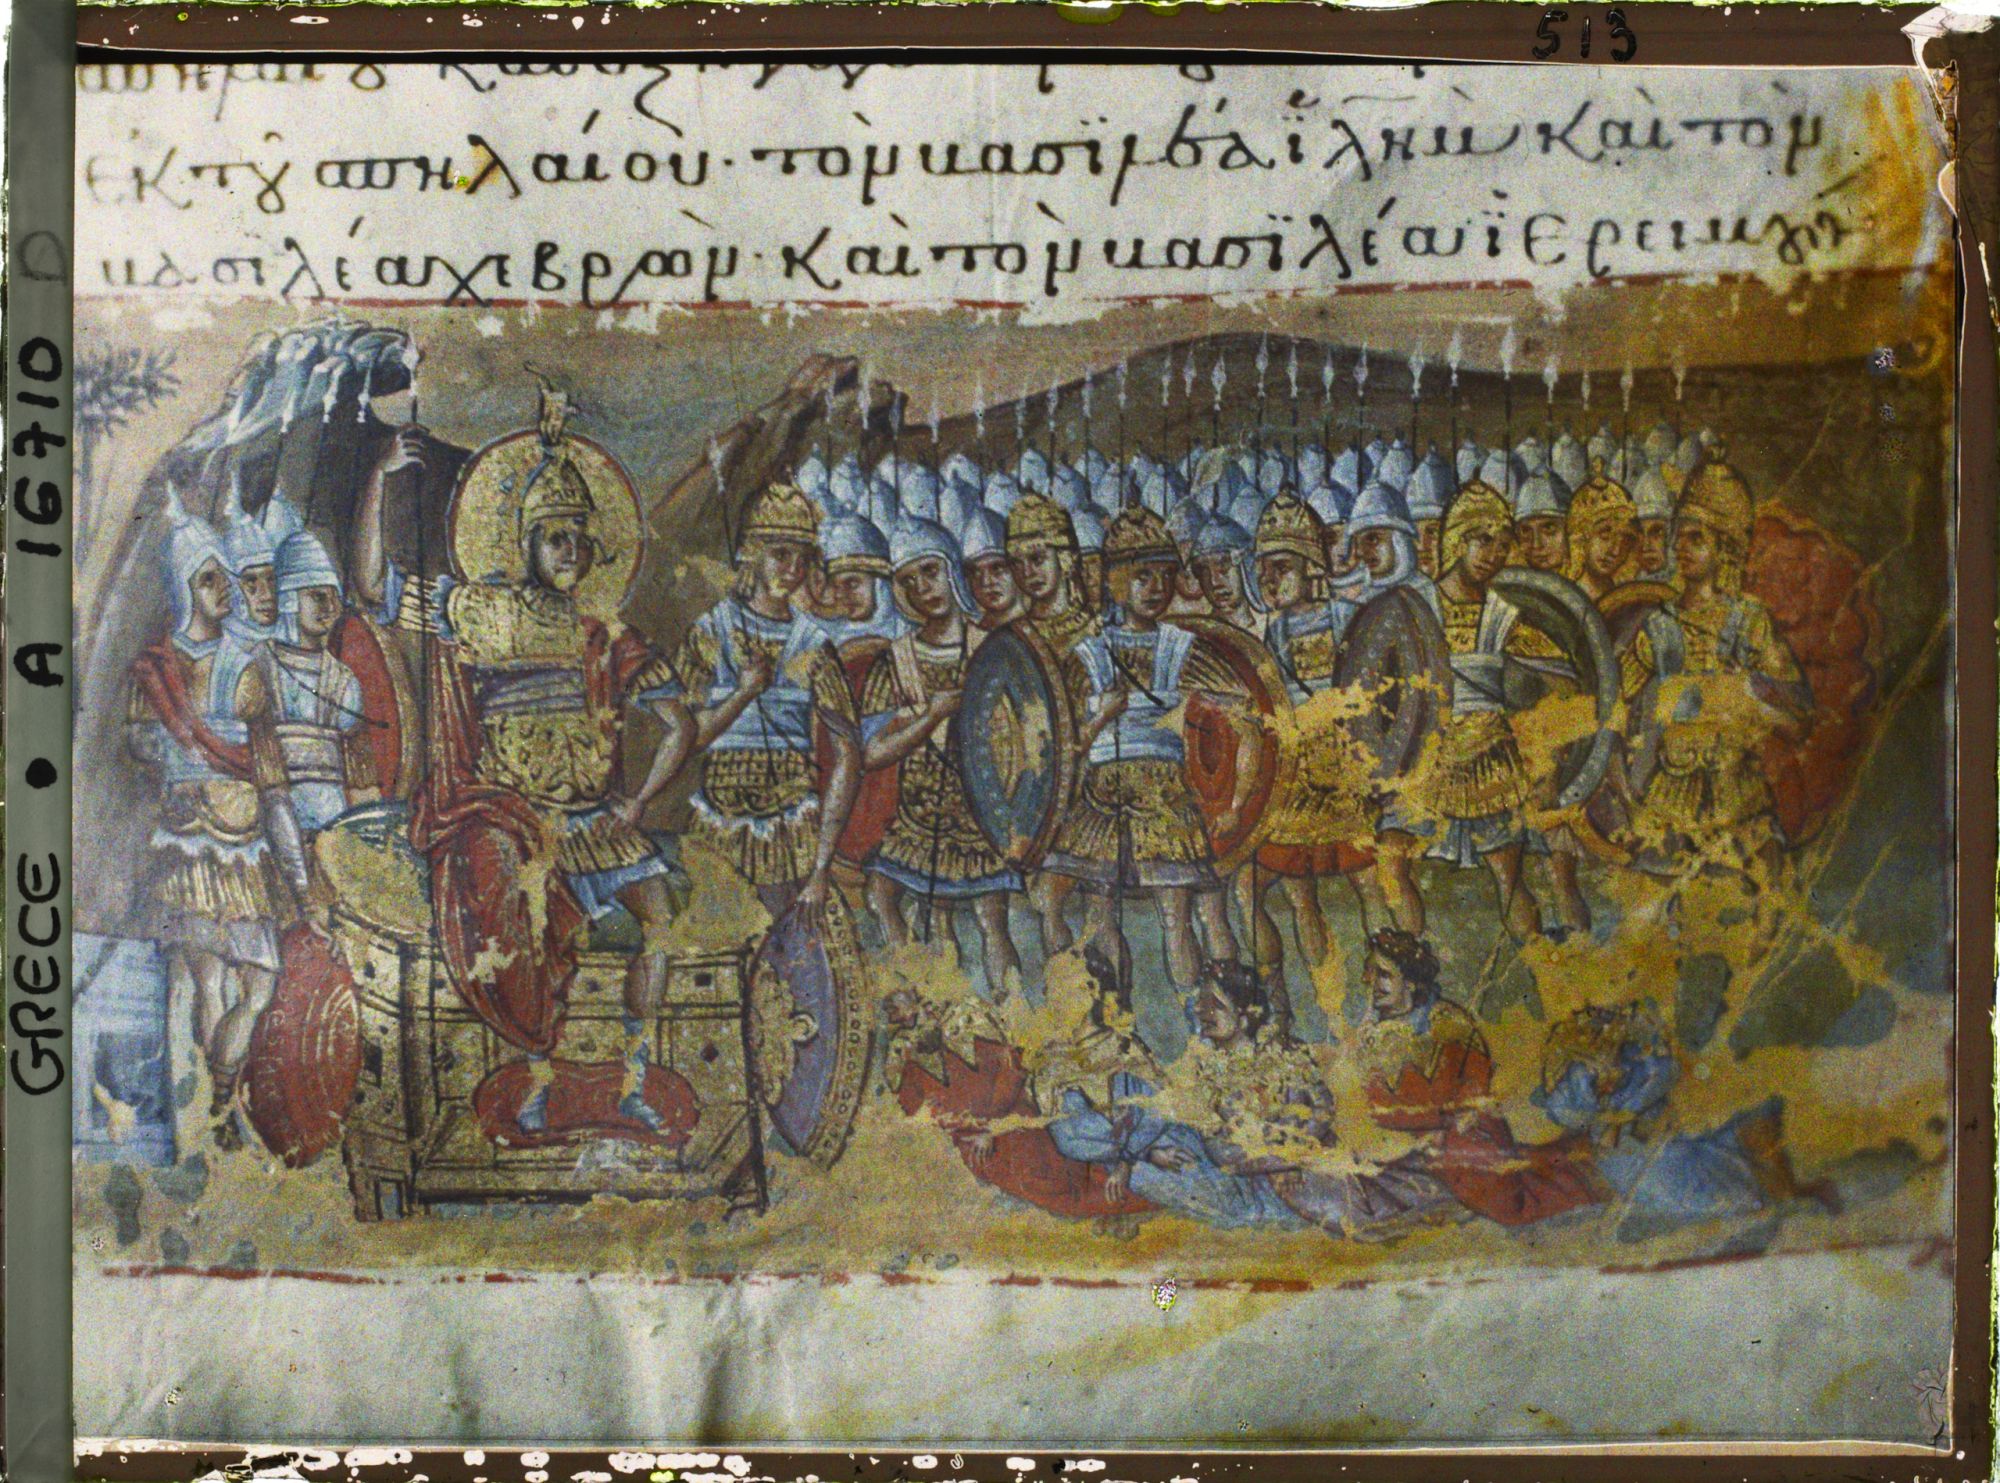 513
ἐκ τȣ͂ σπηλαίου· τὸν βασϊλέα ϊλῆμ καὶ τὸν
βασιλέα χεβρὼν· καὶ τὸν βασϊλέα ϊερειμȣ́θ·
GRECE • A 16710 D